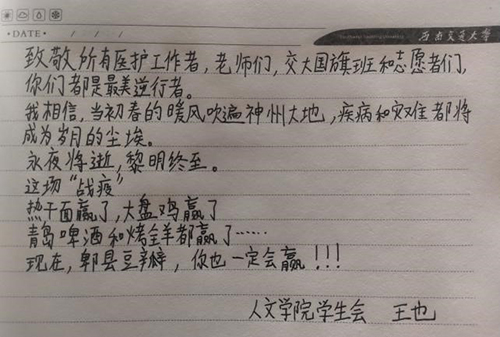 •DATE• / / /
西南交通大学
致敬所有医护工作者,老师们,交大国旗班和志愿者们,
你们都是最美逆行者。
我相信,当初春的暖风吹遍神州大地,疾病和灾难都将
成为岁月的尘埃。
永夜将逝,黎明终至。
这场“战疫”
热干面赢了,大盘鸡赢了
青岛啤酒和烤全羊都赢了……
现在,郫县豆瓣,你也一定会赢!!!
人文学院学生会 王也